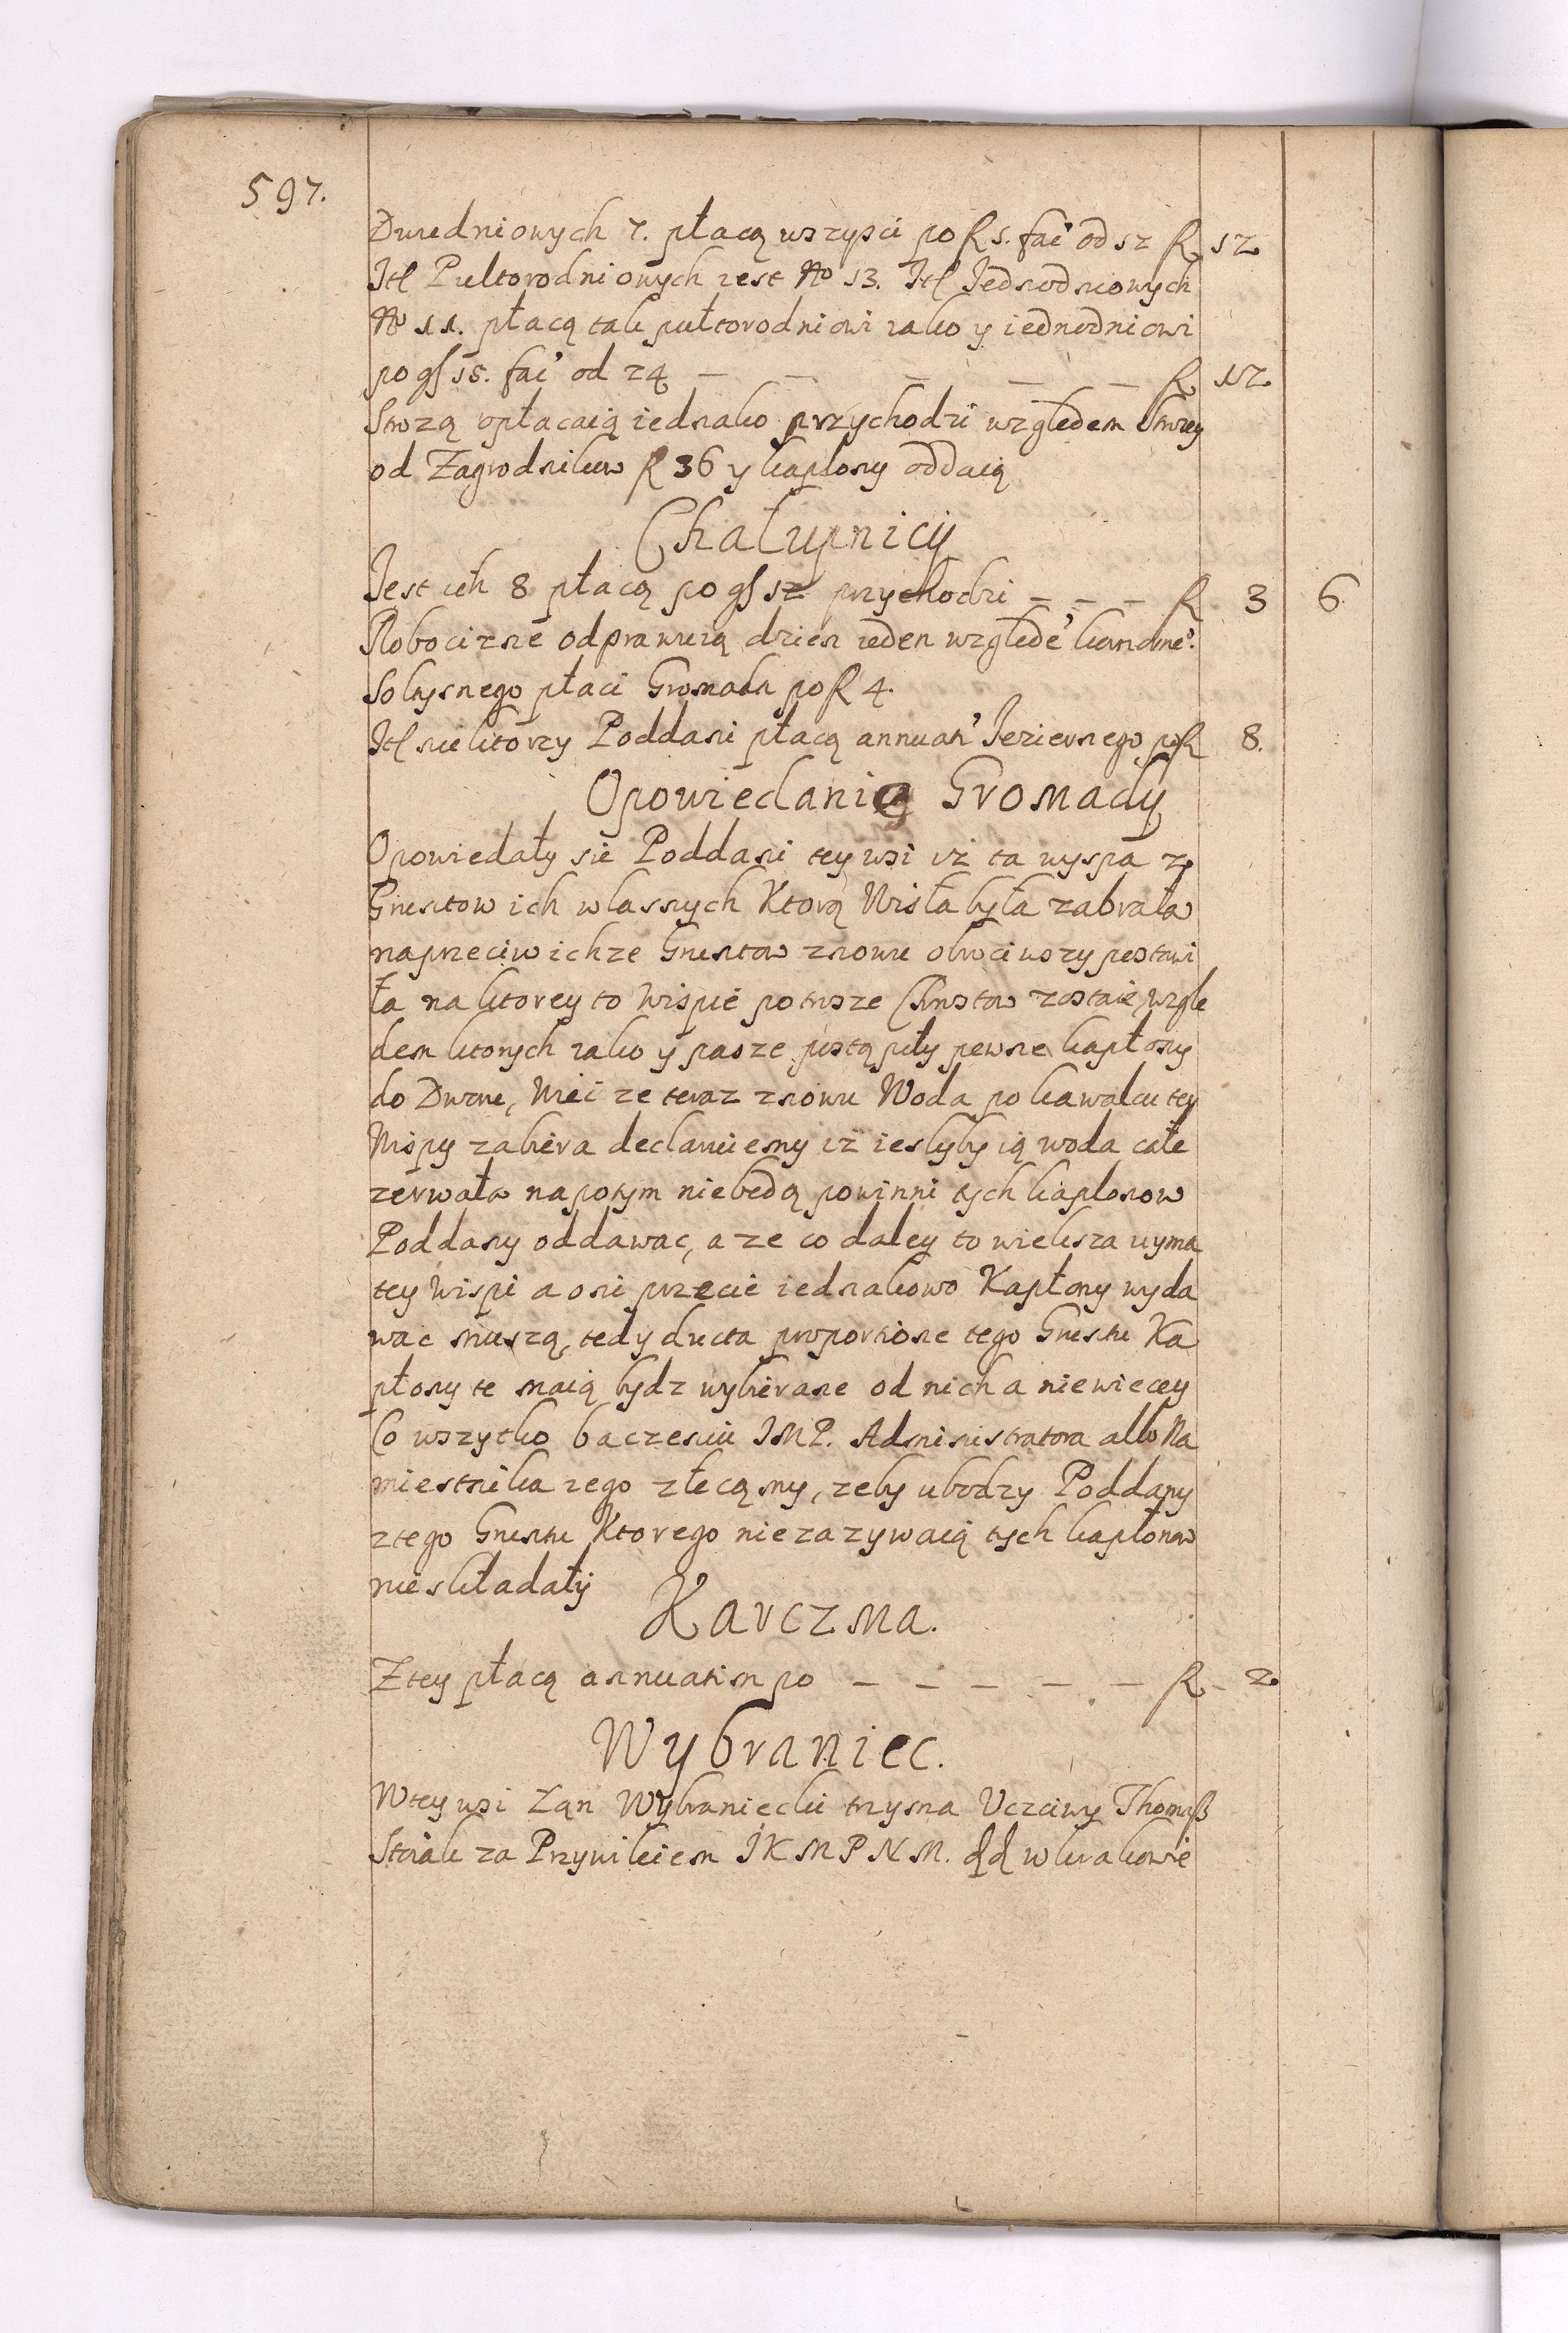 597.
Dwudniowych 7. płacą wszysci po fl 1. faci' od 12 fl 12
Itt Pułtorodniowych iest No 13. Itt Jednodniowych
No 11. płacą tak pułtorodniowi iako y iednodniowi
po gl 15. faci' od 24 – – – – – fl 12
Strozą opłacaią iednako przychodzi względem Strozey
od Zagrodnikow fl 36 y kapłony oddaią
Chałupnicy
Jest ich 8 płacą po gl 12 przychodzi – – – fl 3 6
Robocizne odprawuią dzien ieden względe'
Sołtysnego płaci Gromada po fl 4.
Itt niektorzy Poddani płacą annuati' Jeziernego po fl 8.
Opowiedanie Gromady
Opowiedały sie Poddani tey wsi iż ta wyspa z
Gruntow ich własnych Ktorą Wisła była zabrała
naprzeciw ichze Gruntow znowu obrociwszy pustwi
ła na ktorey to Wispie potrosze Chrostow zostaie, wzglę
dem ktorych iako y pasze postąpiły pewne kapłony
do Dworu, Więc ze teraz znowu Woda po kawalcu tey
Wispy zabiera declaruiemy iż iesliby ią woda cale
zerwała napotym niebędą powinni tych kapłonow
Poddany oddawac, a ze co daley to wieksza uyma
tey Wispi a oni przecie iednakowo Kapłony wyda
wac muszą, tedy ducta proportione tego Gruntu Ka
płony te maią bydz wybierane od nich a niewiecey
Co wszytko baczeniu JMP. Administratora albo Na
miestnika iego zlecamy, zeby ubodzy Poddany
ztego Gruntu Ktorego niezazywaią tych kapłonow
nieskładały
Karczma.
Ztey płacą annuatim po – – – – – fl 2
Wybraniec.
Wtey wsi Łan Wybraniecki trzyma Uczciwy Thomasz
Stoiak za Przywileiem JKMPNM. dd w Krakowie